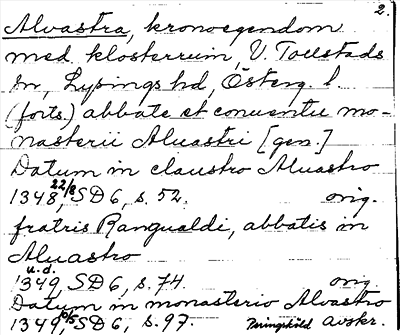 2.
Alvastra, kronoegendom
med klosterruin, V. Tollstads
sn, Lysings hd, Österg. l.
(forts.) abbate et conuentu mo-
nasterii Aluastri [gen.]
Datum in claustro Aluastro
1348 22/8, SD 6, s. 52. orig.
fratris Rangualdi, abbatis in
Aluastro
u.d.
1349, SD 6, s. 74. orig.
Datum in monasterio Alvastro
1349, SD 6, s. 97. Peringskiöld Avskr.